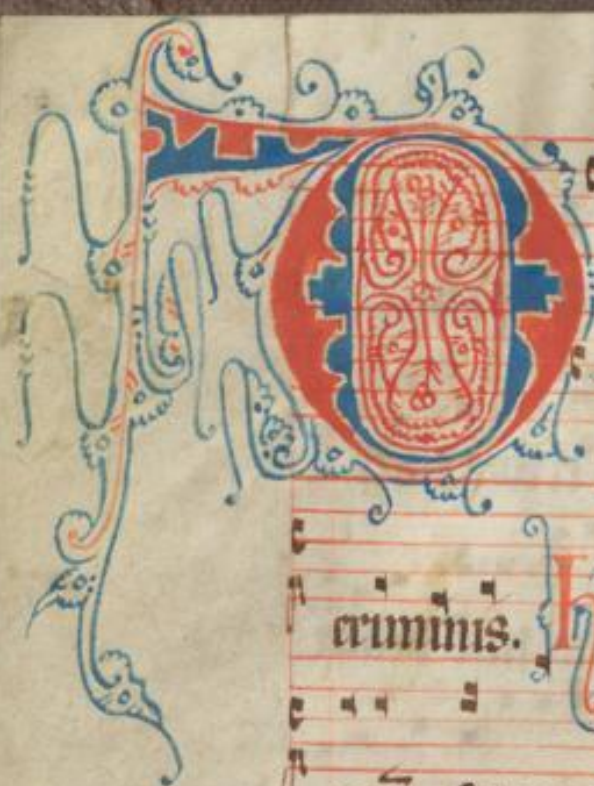 D
criminis.